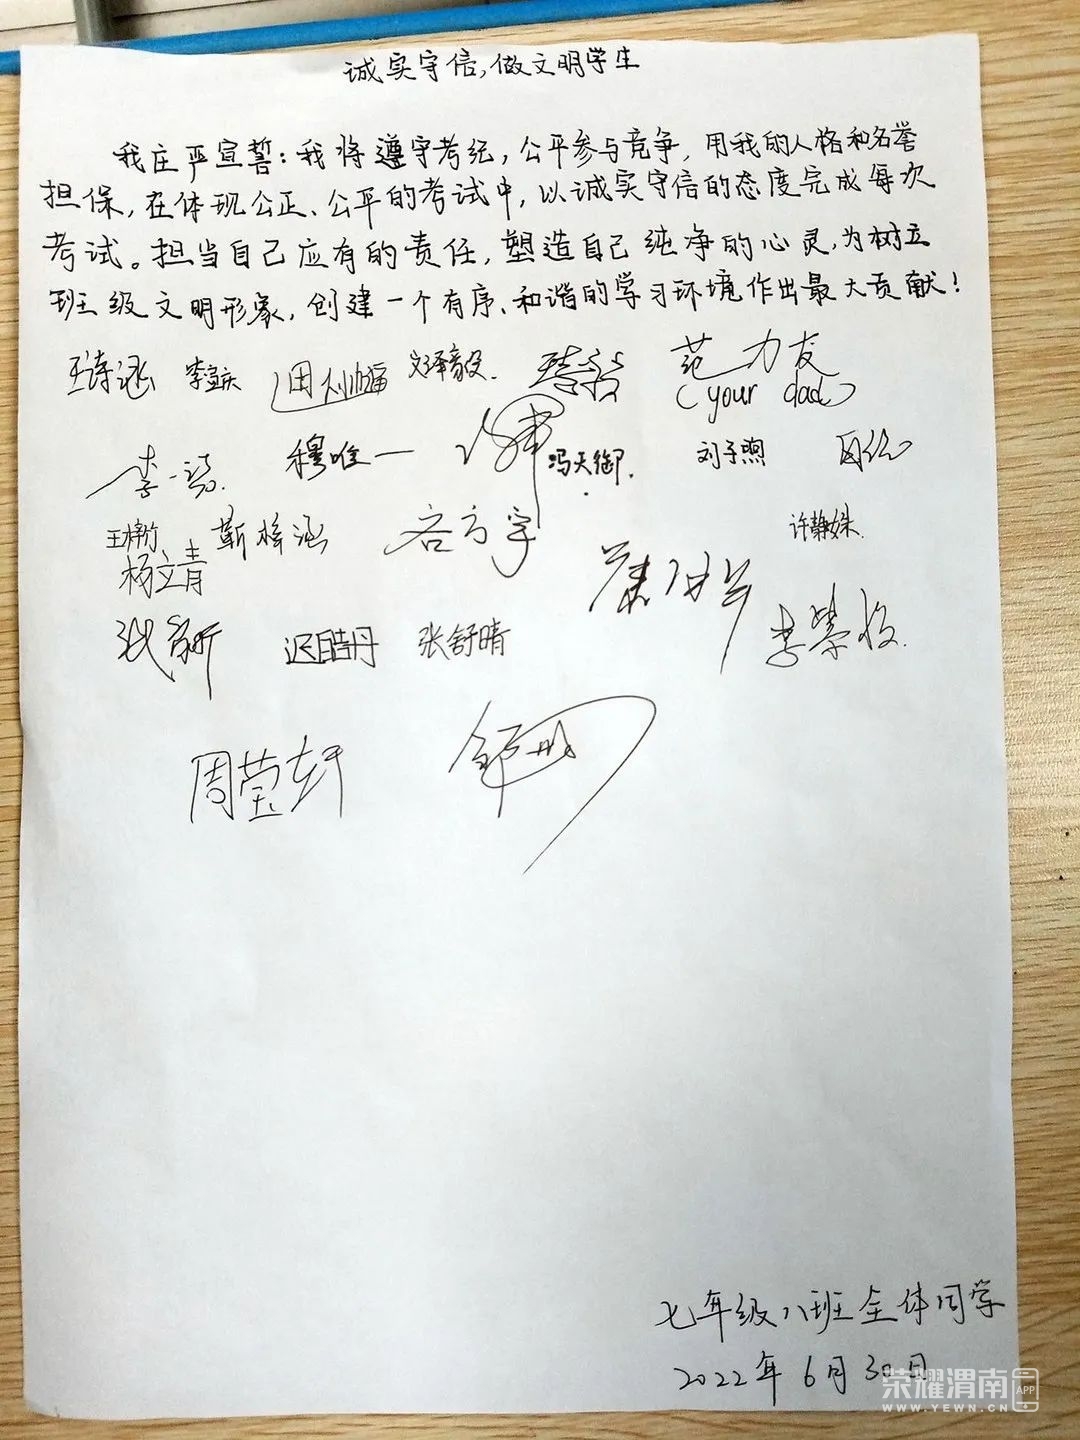 诚实守信,做文明学生
我庄严宣誓:我将遵守考纪,公平参与竞争,用我的人格和名誉
担保,在体现公正、公平的考试中,以诚实守信的态度完成每次
考试。担当自己应有的责任,塑造自己纯净的心灵,为树立
班级文明形象,创建一个有序、和谐的学习环境作出最大贡献!
王诗涵 刘泽毅 范力友
(your dad)
李一诺 穆唯一 冯天御 刘子煦
靳梓涵 容方宇 许静姝
杨立青
迟皓丹 张舒晴
周莹轩
七年级八班全体同学
2022年6月30日
荣耀渭南 APP
WWW.YEWN.CN